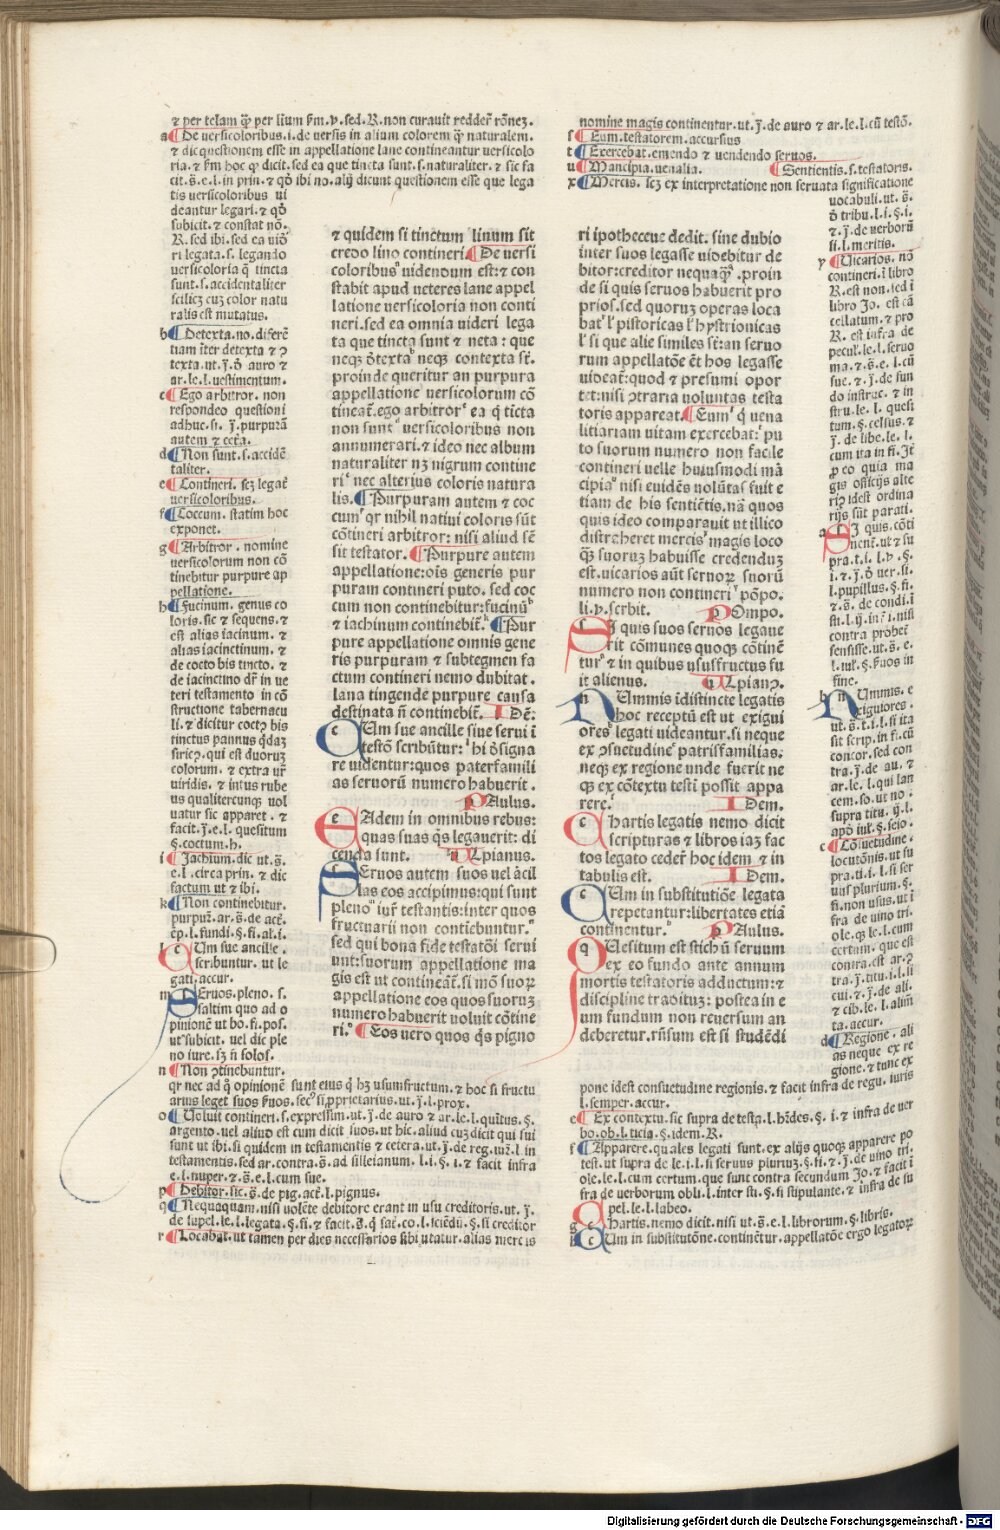 ⁊ per telam qͣ per linum b̄m.y.sed.R.non curauit redder̄ rōnez.
a ¶De versicoloribus.i.de versis in alium colorem qͣ naturalem.
⁊ dic questionem esse in appellatione lane contineantur versicolo
ria.⁊ b̄m hoc ꝙ dicit.sed ea que tincta sunt.s.naturaliter.⁊ sic fa
cit.s̄.e.l.in prin.⁊ qd̄ ibi no.alij dicunt questionem esse que lega
tis versicoloribus ui
deantur legari.⁊ qd̄
subicit.⁊ constat nō.
R.sed ibi.sed ea uid̄
ri legata.s.legando
versicoloria q̄ tincta
sunt.s.accidentaliter
scilicz cuz color natu
ralis est mutatus.
b ¶Detexta.no.differē
tiam īter detexta ⁊ ꝯ
texta.ut.j̄.d̄ auro ⁊
ar.le.l.uestimentum.
c ¶Ego arbitror.non
respondeo questioni
adhuc.si.j̄.purpurā
autem ⁊ cet̄a.
d ¶Non sunt.s.accidē
taliter.
e ¶Contineri.scz legat̄
uersicoloribus.
f ¶Coccum.statim hoc
exponet.
g ¶Arbitror.nomine
versicolorum non cō
tinebitur purpure ap
pellatione.
h ¶Fucinum.genus co
loris.sic ⁊ sequens.⁊
est alias iacinum.⁊
alias iacinctinum.⁊
de cocto bis tincto.⁊
de iacinctino dr̄ in ue
teri testamento in cō
structione tabernacu
li.⁊ dicitur coctꝫ bis
tinctus pannus q̄daz
siricꝫ.qui est duoruz
colorum.⁊ extra ur̄
uiridis.⁊ intus rube
us qualitercunqꝫ uol
uatur sic apparet.⁊
facit.j̄.e.l.quesitum
§.coctum.h.
i ¶Jachium.dic ut.s̄.
e.l.circa prin.⁊ dic
factum ut ⁊ ibi.
k ¶Non continebitur.
purpuᷓ.ar.s̄.de act̄.
ēp.l.fundi.§.fi.al.i.
l cUm sue ancille.
scribuntur.ut le
gati.accur.
m SEruos.pleno.s.
saltim quo ad o
pinionē ut bo.fi.pos.
ut subicit.uel dic ple
no iure.sꝫ n̄ solo s.
n ¶Non ꝯtinebuntur.
qr nec ad q̄ opinionē sunt eius q̄ hz usumfructum.⁊ hoc si fructu
arius leget suos b̄uos.secꝰ si ꝓprietarius.ut.j̄.l.prox.
o ¶Uoluit contineri.s.expressim.ut.j̄.de auro ⁊ ar.le.l.quītus.§.
argento.uel aliud est cum dicit suos.ut hic.aliud cuz dicit qui sui
sunt ut ibi.si quidem in testamentis ⁊ cetera.ut.j̄.de reg.iur̄.l.in
testamentis.sed ar.contra.s̄.ad silleianum.l.i.§.i.⁊ facit infra
e.l.nuper.⁊ s̄.e.l.cum sue.
p ¶Debitor.sic.s̄.de pig.act̄.l.pignus.
q ¶Nequaquam.nisi volēte debitore erant in usu creditoris.ut.j̄.
de supel.le.l.legata.§.fi.⁊ facit.s̄.q̄ sat̄.co.l.sciēdū.§.si creditor
r ¶Locabat.ut tamen per dies necessarios sibi utatur.alias mercis
⁊ quidem si tinctum linum sit
credo lino contineri.¶De versi
coloribꝰ uidendum est:⁊ con
stabit apud ueteres lane appel
latione versicoloria non conti
neri.sed ea omnia uideri lega
ta que tincta sunt ⁊ neta:que
neqꝫ ꝺtextaᵇ neqꝫ contexta st̄.
proinde queritur an purpura
appellatione versicolorum cō
tineat̄.ego arbitrorᶜ ea q̄ tīcta
non suntᵈ uersicoloribus non
annumerari.⁊ ideo nec album
naturaliter nꝫ nigrum contine
riᵉ nec alterius coloris natura
lis.¶Purpuram autem ⁊ coc
cumᶠ qr nihil natiui coloris sūt
cōtineri arbitror:nisi aliud sē
sit testator.¶Purpure autem
appellatione:oīs generis pur
puram contineri puto.sed coc
cum non continebitur:fucinūʰ
⁊ iachinum continebit̄.ᵏ ¶Pur
pure appellatione omnis gene
ris purpuram ⁊ subtegmen fa
ctum contineri nemo dubitat.
lana tingende purpure causa
destinata n̄ continebit̄. IDē:
cUm sue ancille siue serui ī
testō scribūtur:ˡ hi ꝺsigna
re uidentur:quos paterfamili
as seruorū numero habuerit.
pAulus.
eAdem in omnibus rebus:
quas suas qͥs legauerit:di
cenda sunt. uLpianus.
SEruos autem suos uel ācil
las eos accipimus:qui sunt
plenoᵐ iur̄ testantis:inter quos
fructuarii non contiebuntur.ⁿ
sed qui bona fide testatōi serui
unt:suorum appellatione ma
gis est ut contineāt̄.si mō suoꝝ
appellatione eos quos suoruz
numero habuerit uoluit cōtine
ri.ᵒ ¶Eos uero quos qͥs pigno
nomine magis continentur.ut.j̄.de auro ⁊ ar.le.l.cū testō.
s ¶Eum.testatorem.accursius
t ¶Exercebat.emendo ⁊ uendendo seruos.
u ¶Mancipia.uenalia. ¶Sentientis.s.testatoris.
x ¶Mercis.scz ex interpretatione non seruata significatione
ri ipothecēue dedit.sine dubio
inter suos legasse uidebitur de
bitor:creditor nequaqͣ.ᑫ proin
de si quis seruos habuerit pro
prios.sed quoruz operas loca
batʳ l̓ pistoricas l̓ hystrionicas
l̓ si que alie similes st̄:an seruo
rum appellatōe ēt hos legasse
uideat̄:quod ⁊ presumi opor
tet:nisi ꝯtraria uoluntas testa
toris appareat.¶Eumˢ q̄ uena
litiariam uitam exercebat:ᵗ pu
to suorum numero non facile
contineri uelle huiusmodi mā
cipiaᵘ nisi euidēs volūtas fuit e
tiam de his sentiētis.nā quos
quis ideo comparauit ut illico
distraheret mercisˣ magis loco
qͣ suoruz habuisse credenduz
est.uicarios aūt seruoꝝ suorū
numero non contineriʸ pōpo.
li.v.scrbit. pOmpo.
SI quis suos seruos legaue
rit cōmunes quoqꝫ cōtinē
turᵃ ⁊ in quibus ususfructus fu
it alienus. uLpianꝫ.
nUmmis īdistincte legatis
hoc receptū est ut exigui
oresᵇ legati uideantur.si neque
ex ꝯsuetudineᶜ patrisfamilias.
neqꝫ ex regione unde fuerit ne
qꝫ ex cōtextu testi possit appa
rere. IDem.
cHartis legatis nemo dicit
scripturas ⁊ libros iaz fac
tos legato ceder̄ hoc idem ⁊ in
tabulis est. IDem.
cUm in substitutiōe legata
repetantur:libertates etiā
continentur. pAulus.
qUesitum est stichū seruum
ex eo fundo ante annum
mortis testatoris adductum:⁊
discipline traditūz:postea in e
um fundum non reuersum an
deberetur.rn̄sum est si studēdi
uocabuli.ut.s̄.
d̄ tribu.l.i.§.i.
⁊.j̄.de uerborū
si.l.meritis.
y ¶Uicarios.nā
contineri.ī libro
R.est non.sed ī
libro Jo.est cā
cellatum.⁊ pro
R.est infra de
pecul.le.l.seruo
ma.⁊ s̄.e.l.cū
sue.⁊.j̄.de fun
do instruc.⁊ in
stru.le.l.quesi
tum.§.celsus.⁊
j̄.de libe.le.l.
cum ita in fi.Jt̄
ꝓ eo quia ma
gis officijs alte
riꝫ idest ordina
rijs sūt parati.
a SI quis.cōti
nent̄.ut ⁊ su
pra.t.i.l.v.§.
i.⁊.j̄.d̄ uer.si.
l.pupillus.§.fi.
⁊.s̄.de condi.ī
sti.l.ij.in fi.nisi
contra probet̄
sensisse.ut.s̄.e.
l.iul.§.b̄uos in
fine.
b nUmmis.e
xiguiores.
ut.s̄.t.i.l.si ita
sit scrip.in fi.cū
concor.sed con
tra.j̄.de au.⁊
ar.le.l.qui lan
cem.so.ut no.
supra titu.ij.l.
apd̄ iul.§.seio.
c ¶Cōsuetudine.
locutōnis.ut su
pra.ti.i.l.si ser
uus plurium.§.
fi.non usus.ut ī
fra de uino tri.
ole.qꝫ le.l.cum
certum.que est
contra.est ar.ꝫ
tra.j̄.titu.i.l.si
cui.⁊.j̄.de ali.
⁊ cib.le.l.alim̄
ta.accur.
d ¶Regione.ali
as neque ex re
gione.⁊ tunc ex
pone idest consuetudine regionis.⁊ facit infra de regu.iuris
l.semper.accur.
e ¶Ex contextu.sic supra de testa.l.h̄des.§.i.⁊ infra de uer
bo.ob.l.ticia.§.idem.R.
f ¶Apparere.quales legati sunt.ex alijs quoqꝫ apparere po
test.ut supra de le.i.l.si seruus pluruz.§.fi.⁊.j̄.de uino tri.
ole.le.l.cum certum.que sunt contra secundum Jo.⁊ facit ī
fra de uerborum obli.l.inter sti.§.si stipulante.⁊ infra de su
pel.le.l.labeo.
g cHartis.nemo dicit.nisi ut.s̄.e.l.librorum.§.libris.
h cUm in substitutōne.continētur.appellatōe ergo legatoꝝ
Digitalisierung gefördert durch die Deutsche Forschungsgemeinschaft - DFG